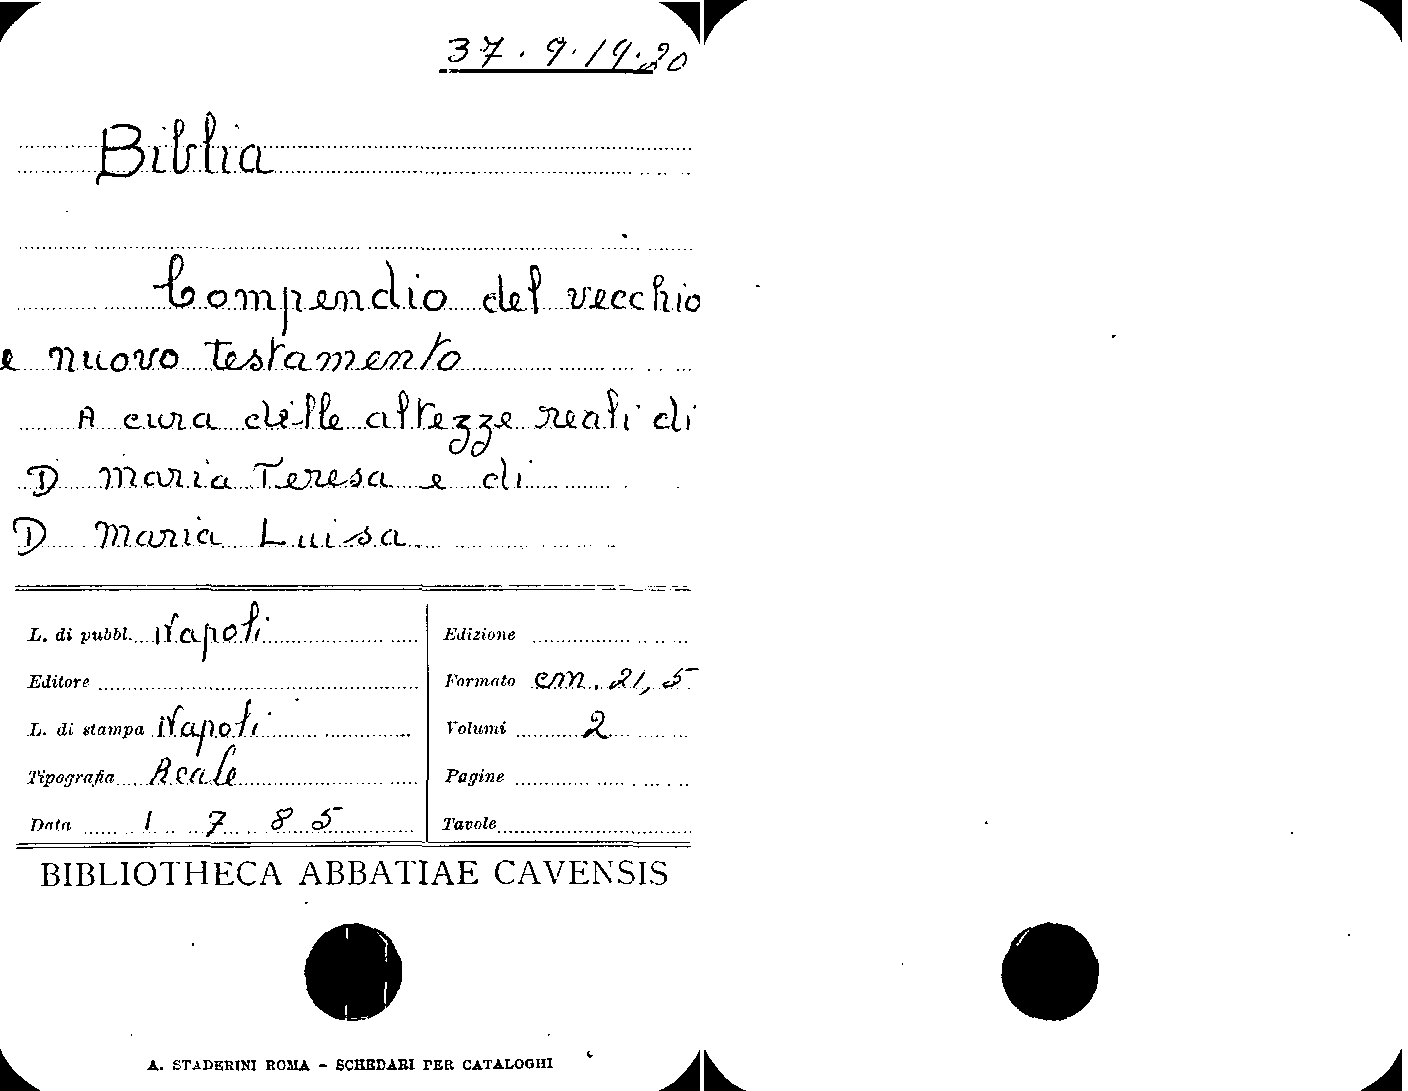 37.9.19.20
Biblia
Compendio del vecchio
e nuovo testamento
A cura delle altezze reali di
D Maria Teresa e di
D Maria Luisa
L. di pubbl. Napoli
Editore
L. di stampa Napoli
Tipografia Reale
Data 1785
Edizione
Formato cm. 21,5
Volumi 2
Pagine
Tavole
BIBLIOTHECA ABBATIAE CAVENSIS
A. STADERINI ROMA - SCHEDARI PER CATALOGHI